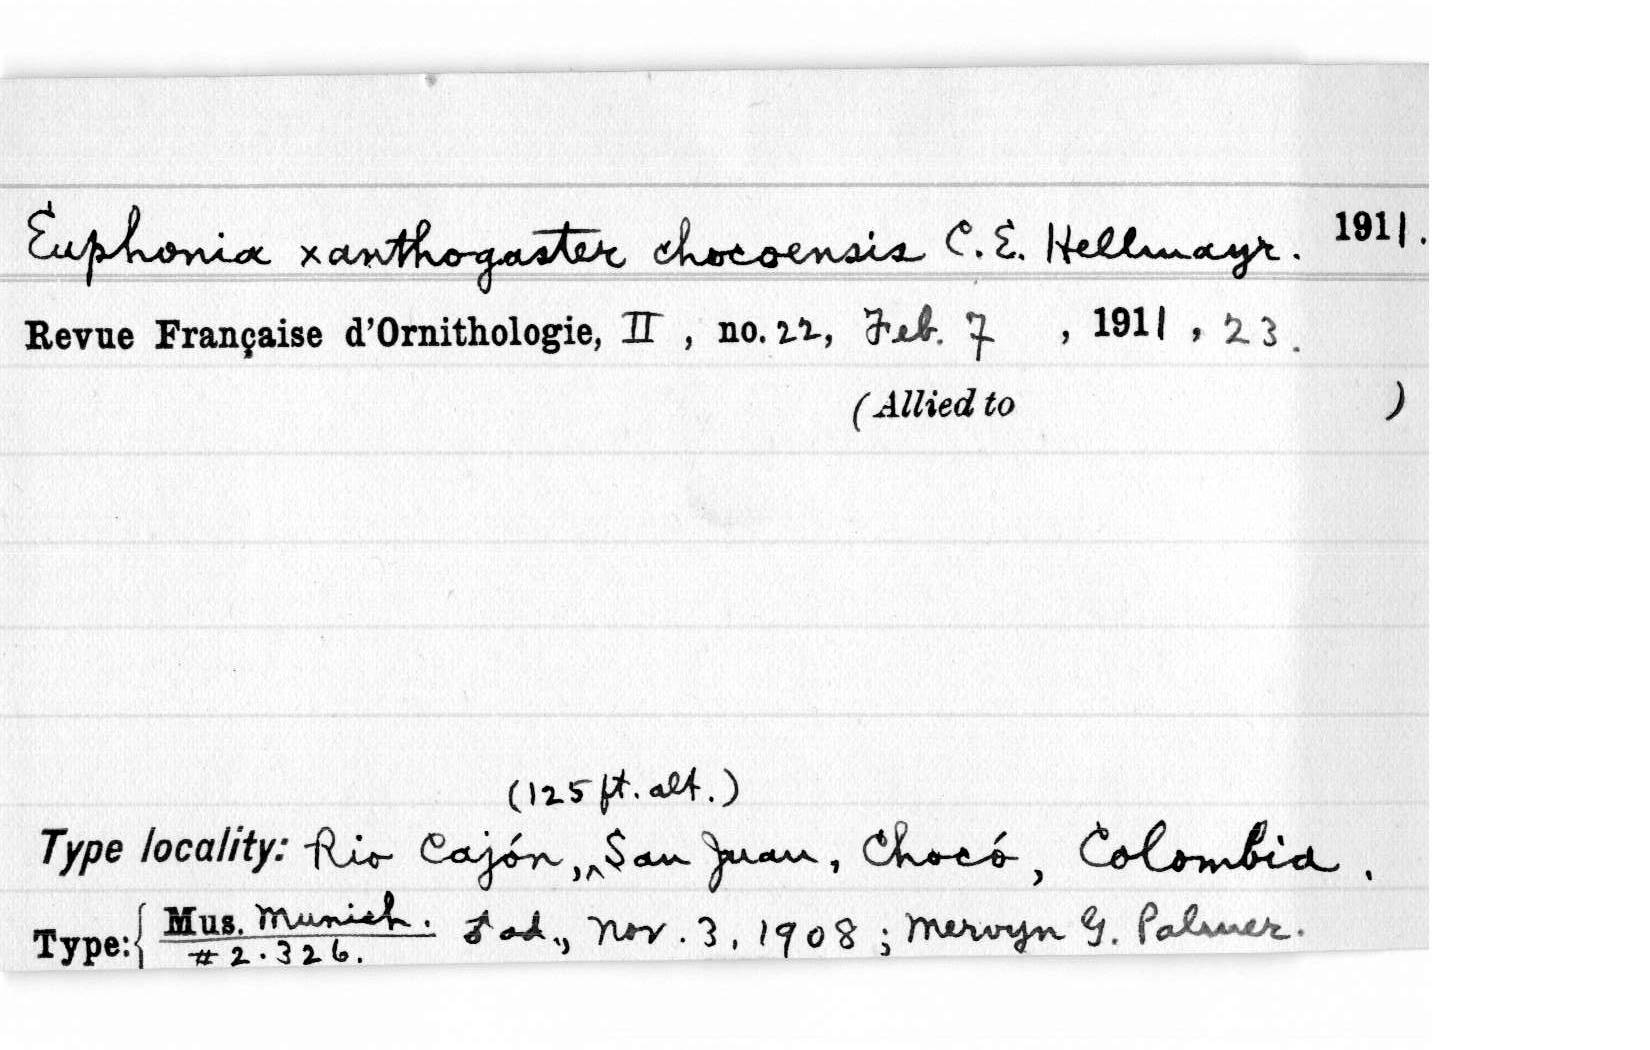 Euphonia xanthogaster chocoensis C. E. Hellmayr. 1911.
Revue Française d'Ornithologie, II, no. 22, Feb. 7, 1911, 23.
(Allied to )
(125 ft. alt.)
Type locality: Rio Cajón, ^ San Juan, Chocó, Colombia.
Type: { Mus. Munich. ad., Nov. 3, 1908; Mervyn G. Palmer.
# 2.326.